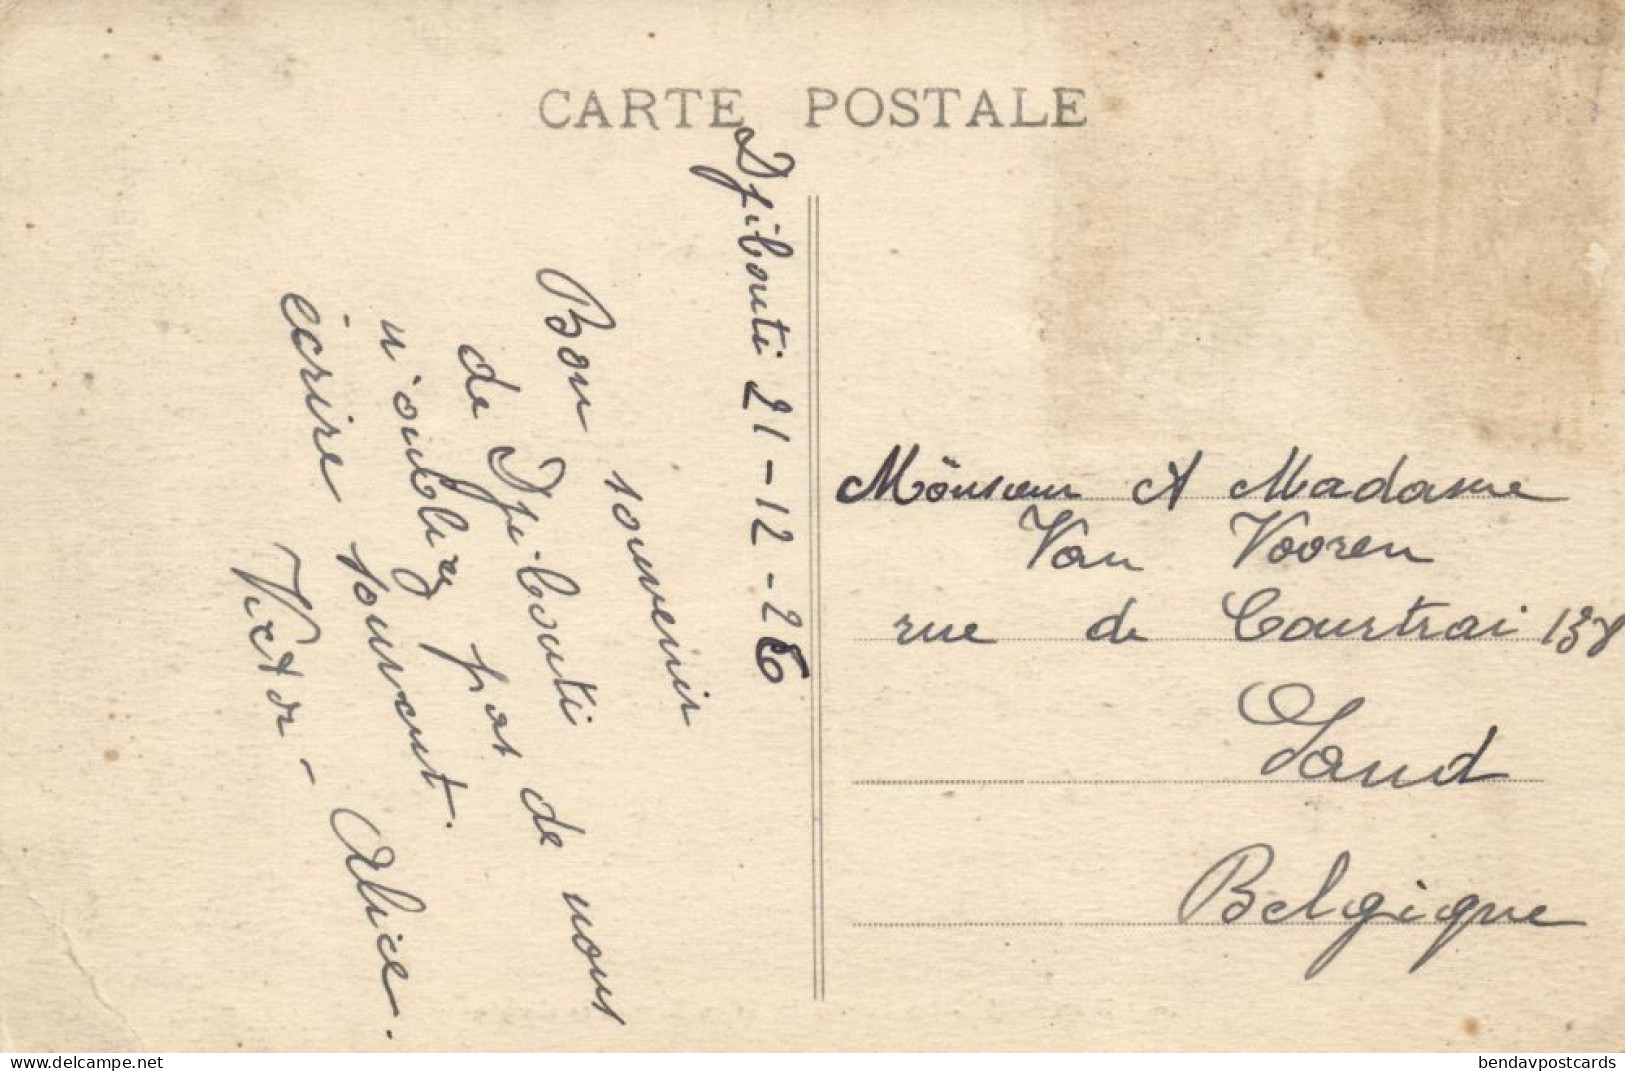 CARTE POSTALE
Djibouti 21-12-26
Bon souvenir
de Djibouti
n'oubliez pas de nous
écrire souvent.
Victor - Alice.
Monsieur et Madame
Van Vooren
rue de Courtrai 138
Gand
Belgique
delcampe.net
bendavpostcards